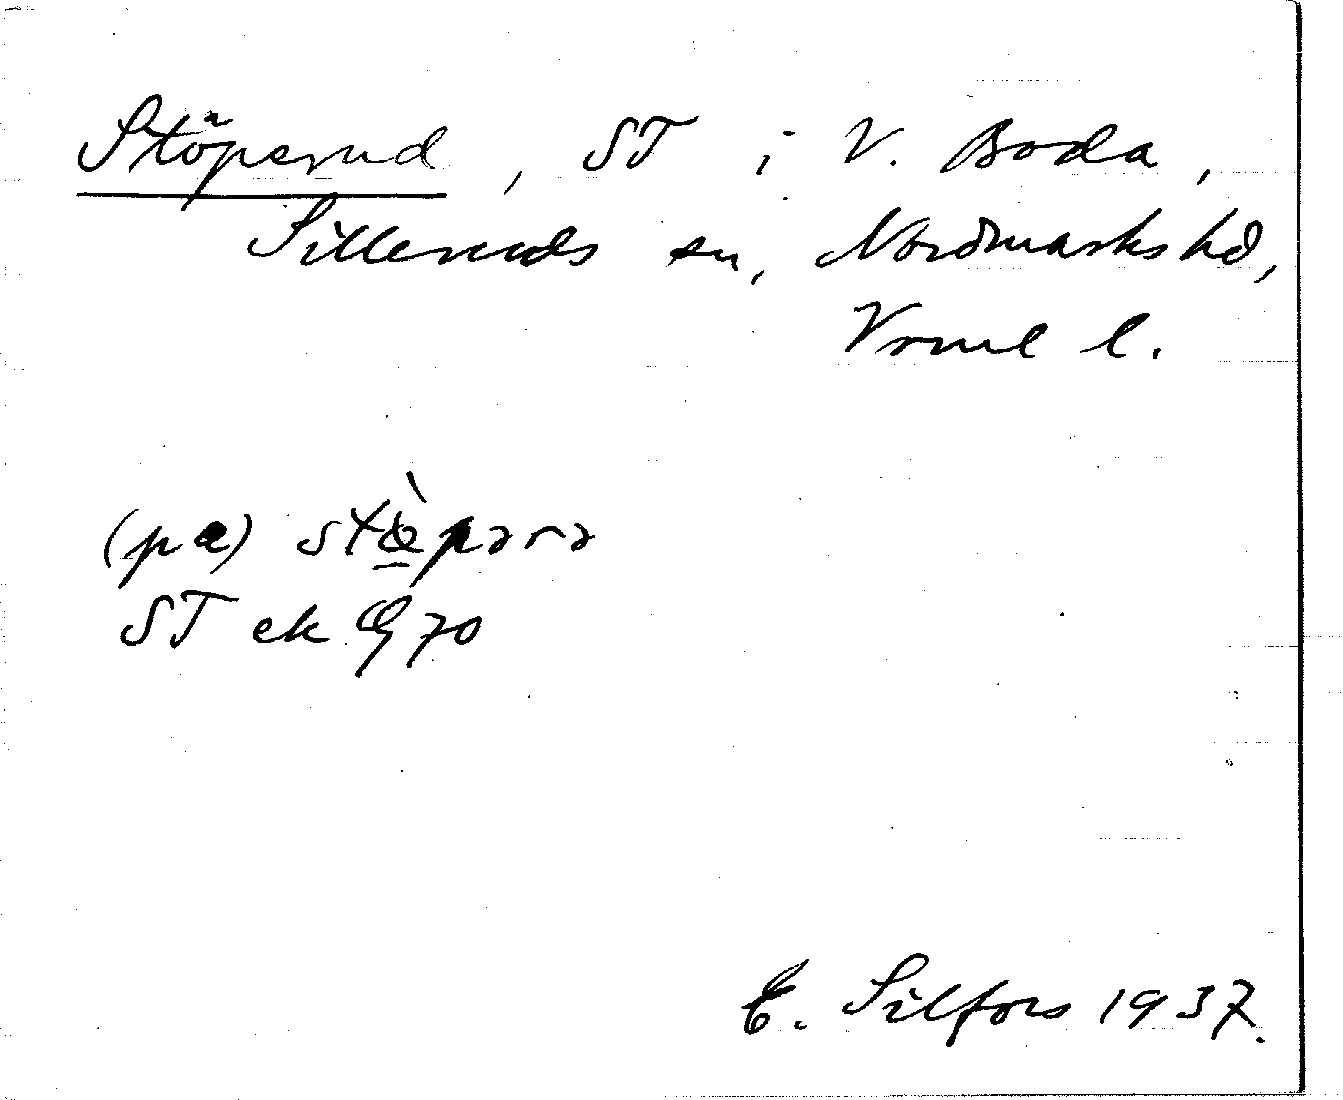 Stöperud, ST i V. Boda,
Silleruds sn, Nordmarks hd,
Vrml l.
(pa) stø̠̀pərə
ST ek G 70
E. Silfors 1937.